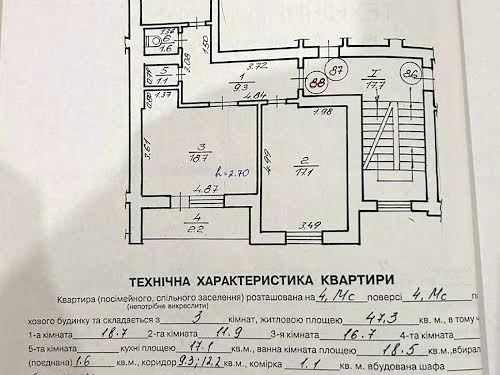 1.26
6
1.6
1.50
3.08
5
1.1
0.77
0.80
1.37
1
9.3
3.72
4.84
88
87
I
17.7
86
1.98
3.61
3
18.7
h=2.70
4.99
2
17.1
4.87
3.49
4
2.2
ТЕХНІЧНА ХАРАКТЕРИСТИКА КВАРТИРИ
Квартира (посімейного, спільного заселення) розташована на 4, Мс поверсі 4, Мс
(непотрібне викреслити)
хового будинку та складається з 3 кімнат, житловою площею 47.3 кв. м., в тому ч
1-а кімната 18.7 2-га кімната 11.9 3-я кімната 16.7 4-та кімната
5-та кімната кухні площею 17.1 кв.м., ванна кімната площею 18.5 кв.м., вбирал
(поєднана) 1.6 кв.м., коридор 9.3; 12.2 кв.м., комірка 1.1 кв.м. вбудована шафа